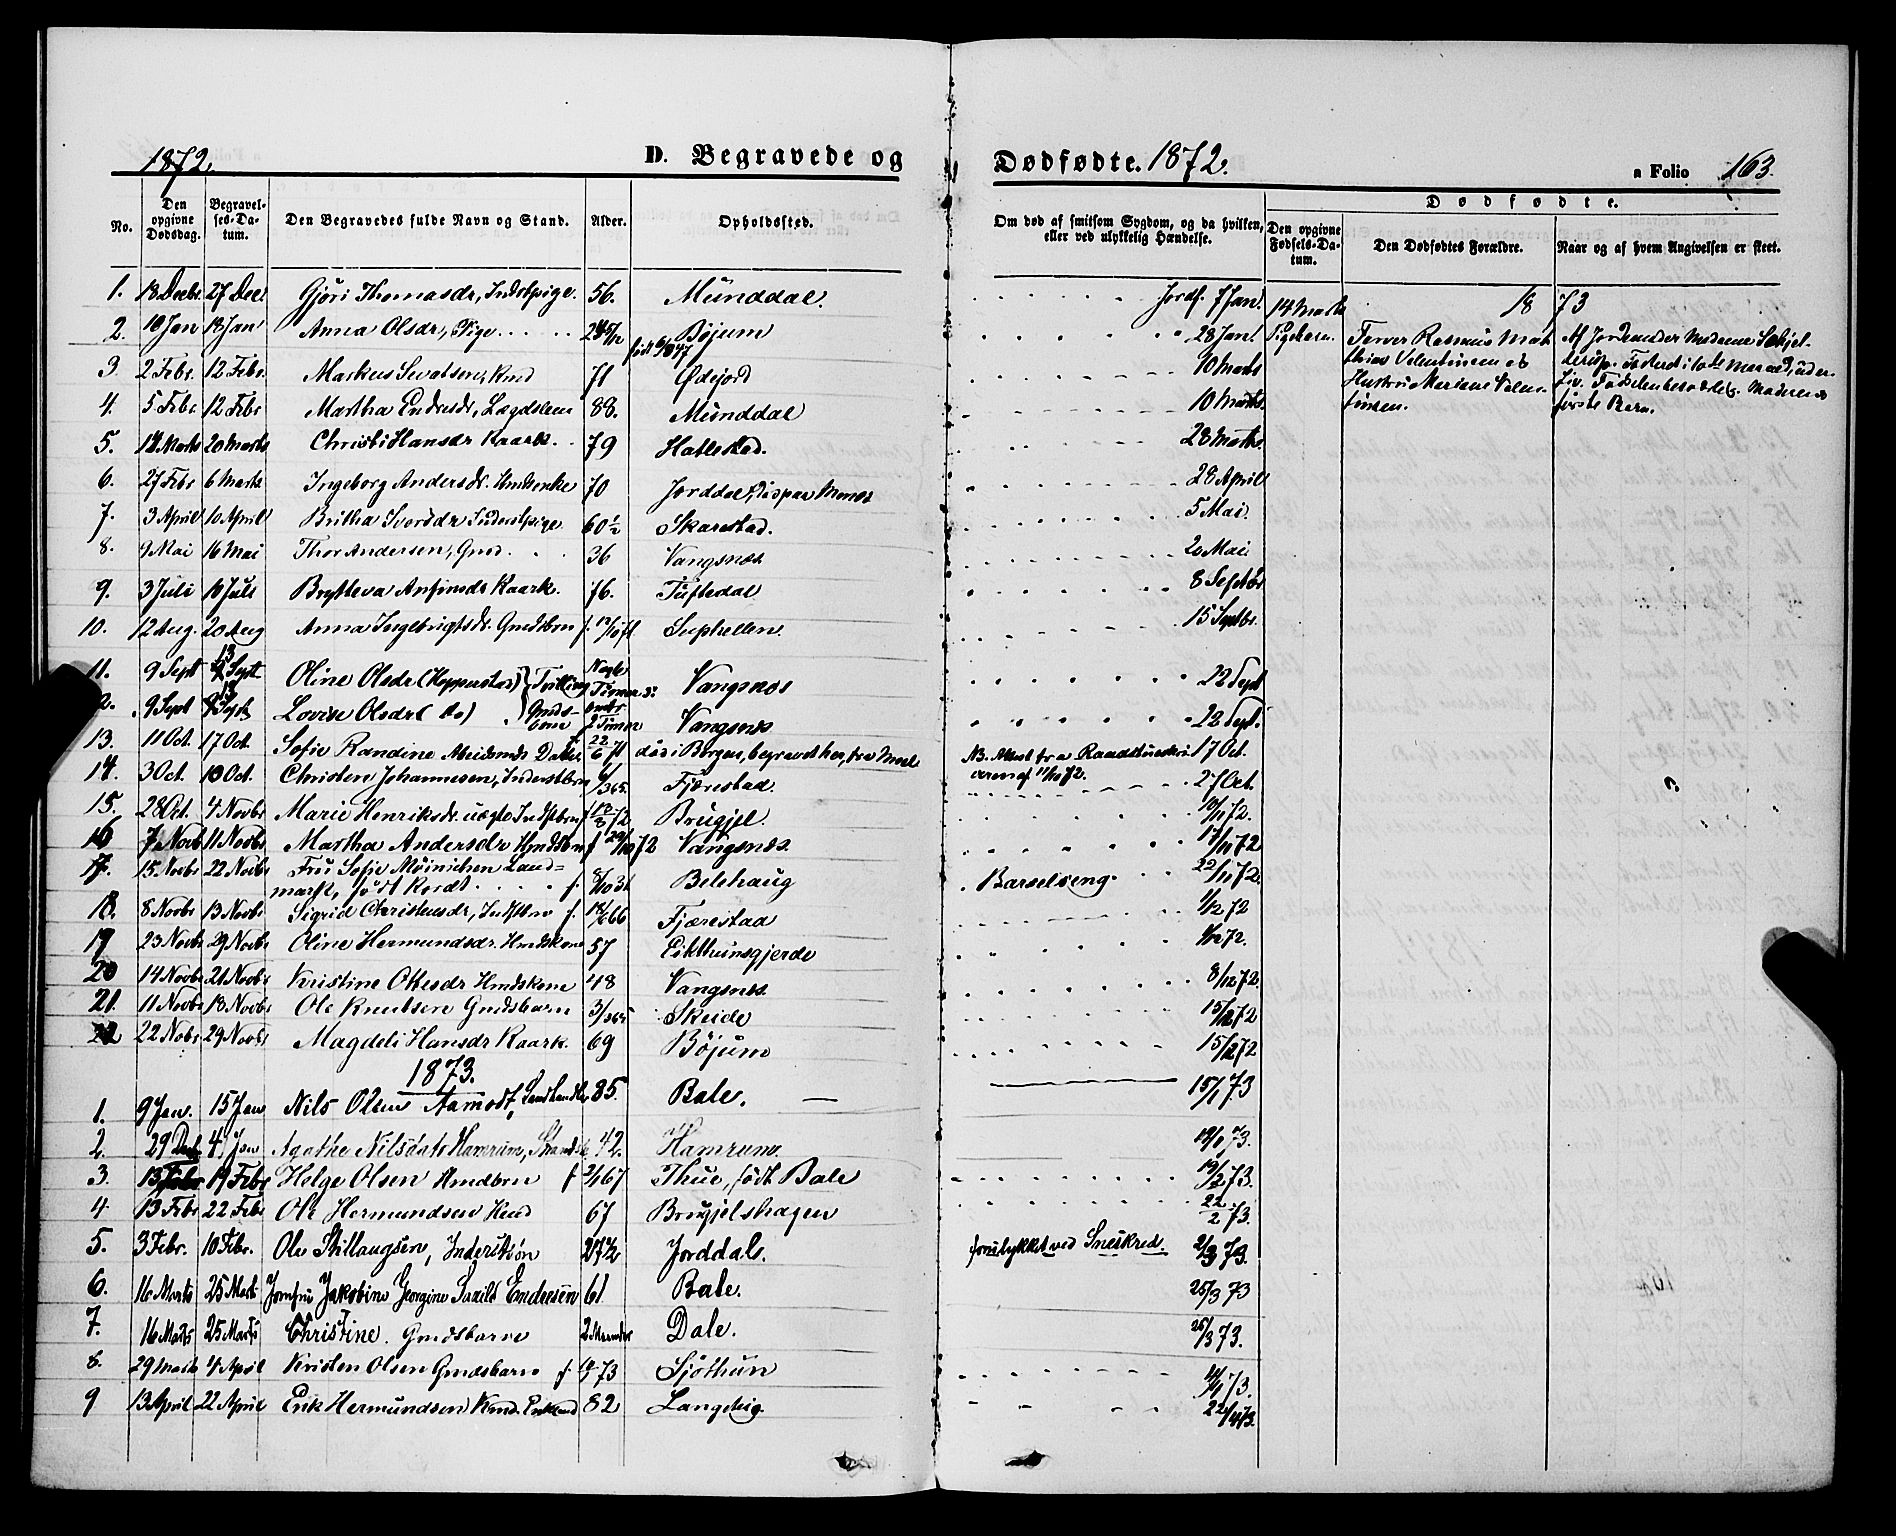 1872.
D. Begravede og
Dødfødte. 1872.
a Folio 163.
No.
Den opgivne Dødsdag.
Begravelses-Datum.
Den Begravedes fulde Navn og Stand.
Alder.
Opholdssted.
Om død af smitsom Sygdom, og da hvilken, eller ved ulykkelig Hændelse.
Dødfødte.
Den opgivne Fødsels-Datum.
Den Dødfødtes Forældre.
Naar og af hvem Angivelsen er skeet.
1. 18 Decbr 27 Dec. Gjøri Thomasdr, Indstpige. 56. Munddal. Jordf. 7 Jan.
2. 10 Jan 18 Jan Anna Olsdr, Pige Bøjum 28 Jan.
3 2 Febr. 12 Febr. Markus Sevatsen, Kmd 71 Ødejord 10 Marts
4. 5 Febr 12 Febr Martha Endresdr, Lægdslem 88. Munddal 10 Marts.
5. 14 Marts 20 Marts Christi Hansdr Kaark. 79 Hatlestad. 28 Marts.
6. 27 Febr 6 Marts Ingeborg Andersdr. Hmdenke 70 Jorddal, 28 April
7. 3 April 10 April Britha Svorsdr Inderstpige 60 1/2 Skarestad. 5 Mai.
8. 9 Mai 16 Mai Thor Andersen, Gmd. 36 Vangsnæs 20 Mai
9. 3 Juli 10 Juli Brytteva Anfinsdr Kaark. 76. Tuftedal 8 Septbr
10. 12 Aug. 20 Aug Anna Ingebrigtsdr. Gmdsbrn f. Suphellen. 15 Septbr.
11. 9 Sept 13 Sept Oline Olsdr (Hopperstad) Tvilling Nogle Timer Vangsnæs 22 Sept
12. 9 Sept 13 Sept Lovise Olsdr (do) Gmds- 2 Timer Vangsnæs 22 Sept.
13. 11 Oct. 17 Oct. Sofie Randine 22/6 71 død i Bergen, begravet her, fra 17 Oct.
14. 3 Oct. 10 Oct. Christen Johannesen, Inderstbrn 6/365. Fjærestad. 27 Oct.
15. 28 Oct. 4 Novbr Marie Henriksdr. uægte Indstbrn f 72 Brugjel. 10/11 72.
16 7 Novbr 11 Novbr Martha Andersdr Hmdsbrn f 29/10 72 Vangsnæs. 17/11 72
17. 15 Novbr 22 Novbr Fru Sofie Møinichen Land-
mark, født Kordt f. 8/10 31 Belehaug Barselseng. 22/11 72.
18. 8 Novbr 13 Novbr Sigrid Christensdr, Indstbrn f. 18/6 66 Fjærestad 1/12 72
19 23 Novbr 29 Novbr Oline Hermundsdr. Hmdskone 57 Eikthunsgjerde 1/12 72.
20 14 Novbr 21 Novbr Kristine Ottesdr Hmdskone 48 Vangsnæs. 8/12 72.
21. 11 Novbr 18 Novbr Ole Knutsen Gmdsbarn 3/365 Skeide 15/12 72
22 22 Nobr 29 Novbr Magdeli Hansdr Kaark. 69 Bøjum 15/12 72
1873.
1. 9 Jan. 15 Jan Nils Olsen Aamodt, Landhandler 85. Bale. 15/1 73
2. 29 Decbr 4 Jan Agathe Nilsdatr Hamrum, 42. Hamrum. 19/1 73.
3. 13 Febr 19 Febr Helge Olsen Hmdbrn f 2/1 67 Thue, født Bale 19/2 73.
4. 13 Febr 22 Febr Ole Hermundsen Kmd 67 Brugjelshagen 22/2 73.
5. 3 Febr. 10 Febr. Ole Stillaugsen, Inderstsøn 27 1/2 Jorddal. forulykket ved Sneskred. 2/3 73.
6. 16 Marts 25 Marts Jomfru Jakobine Georgine Endresen 61 Bale. 25/3 73
7. 16 Marts 25 Marts Christine. Gmdsbarn 2 Maaneder Dale. 25/3 73.
8. 29 Marts 4 April Kristen Olsen Gmdsbarn f. 73 Sjøthun 14/4 73.
9 13 April 22 April Erik Hermundsen Kmd. Enkemd 82 Langeteig. 22/4 73.
NB. Attest fra Raadstueskri-
veren af 11/10 72.
18 73
14 Marts Pigebarn. Farver Rasmus Mat-
thias Valentinsen og
Hustru Mariane Valen-
tinsen.
Af Jordemoder Madame Schjel-
derup. Fosteret i 10de Maaned, uden
Liv. Moderens
første Barn.